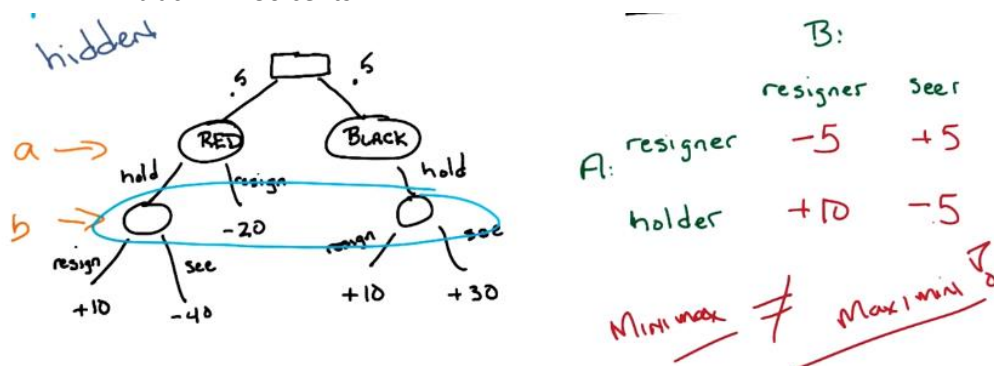 hidden
.5 .5
a → RED BLACK
hold resign hold
b → -20
resign see resign see
+10 -40 +10 +30
B:
resigner seer
A: resigner -5 +5
holder +10 -5
Minimax ≠ Maximin